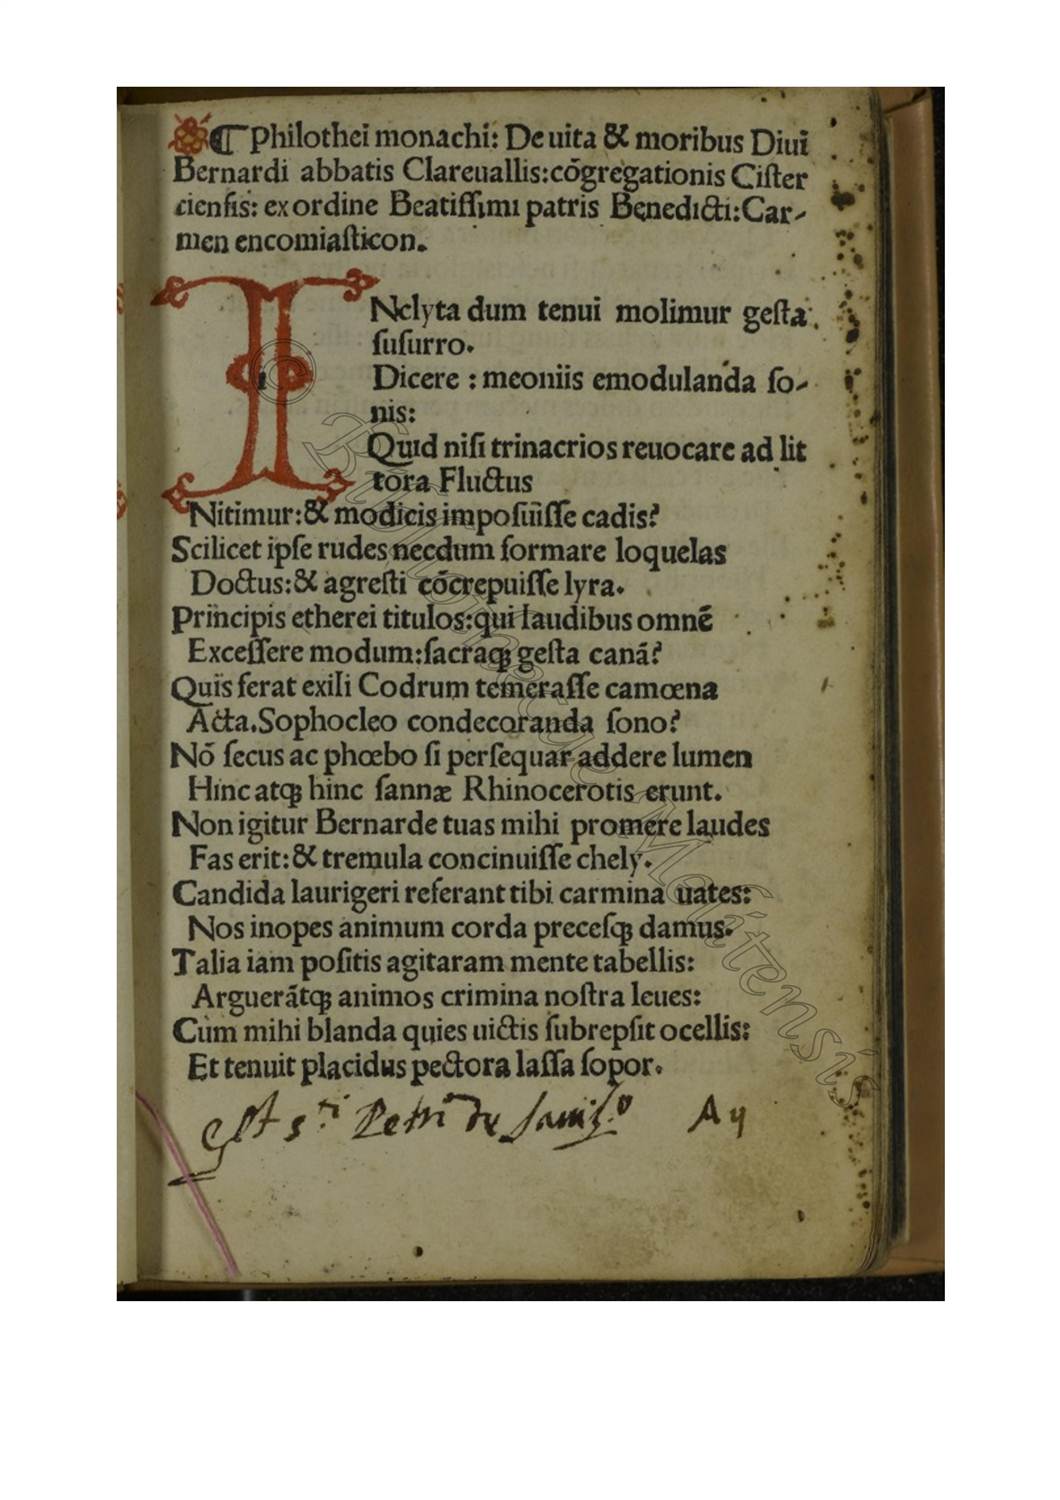 ¶ Philothei monachi: De uita & moribus Diui
Bernardi abbatis Clareuallis: cōgregationis Ciſter
cienſis: ex ordine Beatiſſimi patris Benedicti: Car-
men encomiaſticon.
INclyta dum tenui molimur geſta
ſuſurro.
Dicere : meoniis emodulanda ſo-
nis:
Quid niſi trinacrios reuocare ad lit
tora Fluctus
Nitimur: & modicis impoſuiſſe cadis?
Scilicet ipſe rudes necdum formare loquelas
Doctus: & agreſti cōcrepuiſſe lyra.
Principis etherei titulos: qui laudibus omnē
Exceſſere modum: ſacraqꝫ geſta canā?
Quis ferat exili Codrum temeraſſe camœna
Acta. Sophocleo condecoranda ſono?
Nō ſecus ac phœbo ſi perſequar addere lumen
Hinc atqꝫ hinc ſannæ Rhinocerotis erunt.
Non igitur Bernarde tuas mihi promere laudes
Fas erit: & tremula concinuiſſe chely.
Candida laurigeri referant tibi carmina uates:
Nos inopes animum corda preceſqꝫ damus.
Talia iam poſitis agitaram mente tabellis:
Arguerātqꝫ animos crimina noſtra leues:
Cùm mihi blanda quies uictis ſubrepſit ocellis:
Et tenuit placidus pectora laſſa ſopor.
Petri de
© Bibliotheca Melitensis